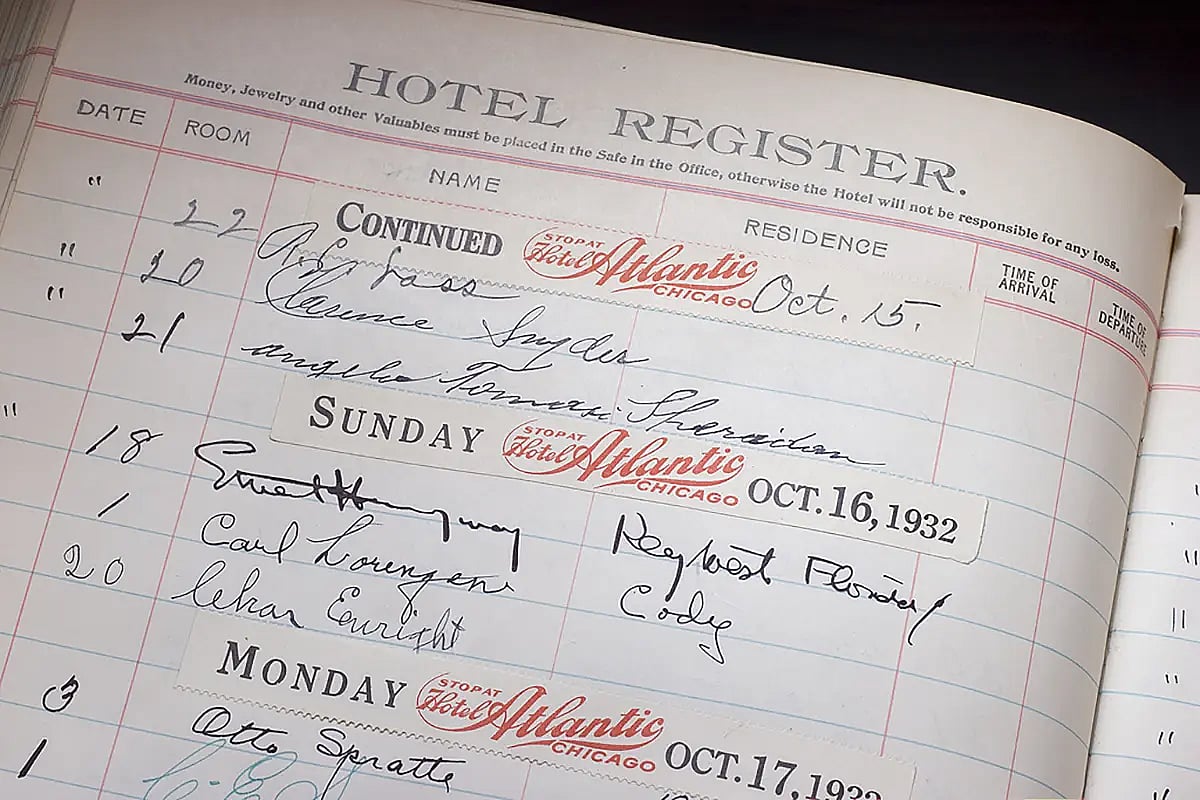 HOTEL REGISTER.
Money, Jewelry and other Valuables must be placed in the Safe in the Office, otherwise the Hotel will not be responsible for any loss.
DATE ROOM NAME RESIDENCE TIME OF ARRIVAL TIME OF DEPARTURE
CONTINUED STOP AT Hotel Atlantic CHICAGO Oct. 15.
" 22
" 20 Clarence Snyder
" 21 Angelo Tomasi Sheridan
SUNDAY STOP AT Hotel Atlantic CHICAGO OCT. 16, 1932
" 18 Ernest Hemingway Key West Florida
1 Carl Lorenzen Cody
20 Enright
MONDAY STOP AT Hotel Atlantic CHICAGO OCT. 17, 1932
3 Otto Spratte
1